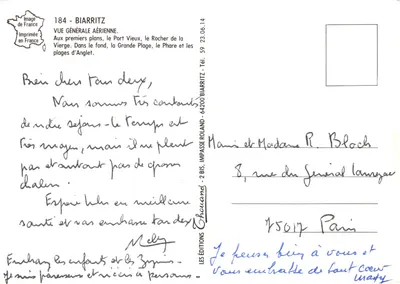 Image
de France
Imprimée
en France
184 - BIARRITZ
VUE GÉNÉRALE AÉRIENNE.
Aux premiers plans, le Port Vieux, le Rocher de la
Vierge. Dans le fond, la Grande Plage, le Phare et les
plages d'Anglet.
Bien chers tous deux,
Nous sommes très contents
de notre séjour - le temps est
très moyen, mais il ne pleut
pas et surtout pas de grosse
chaleur.
Espère Lulu en meilleure
santé et vous embrasse tous deux
Embrassez les enfants et les
Je suis paresseuse et n'écris à personne -
LES ÉDITIONS Chatagneau - 2 BIS, IMPASSE ROLAND - 64200 BIARRITZ - Tél. 59 23.06.14
Mr et Madame R. Bloch
8, rue du Général Lanrezac
75017 Paris
Je pense bien à vous et
vous embrasse de tout coeur